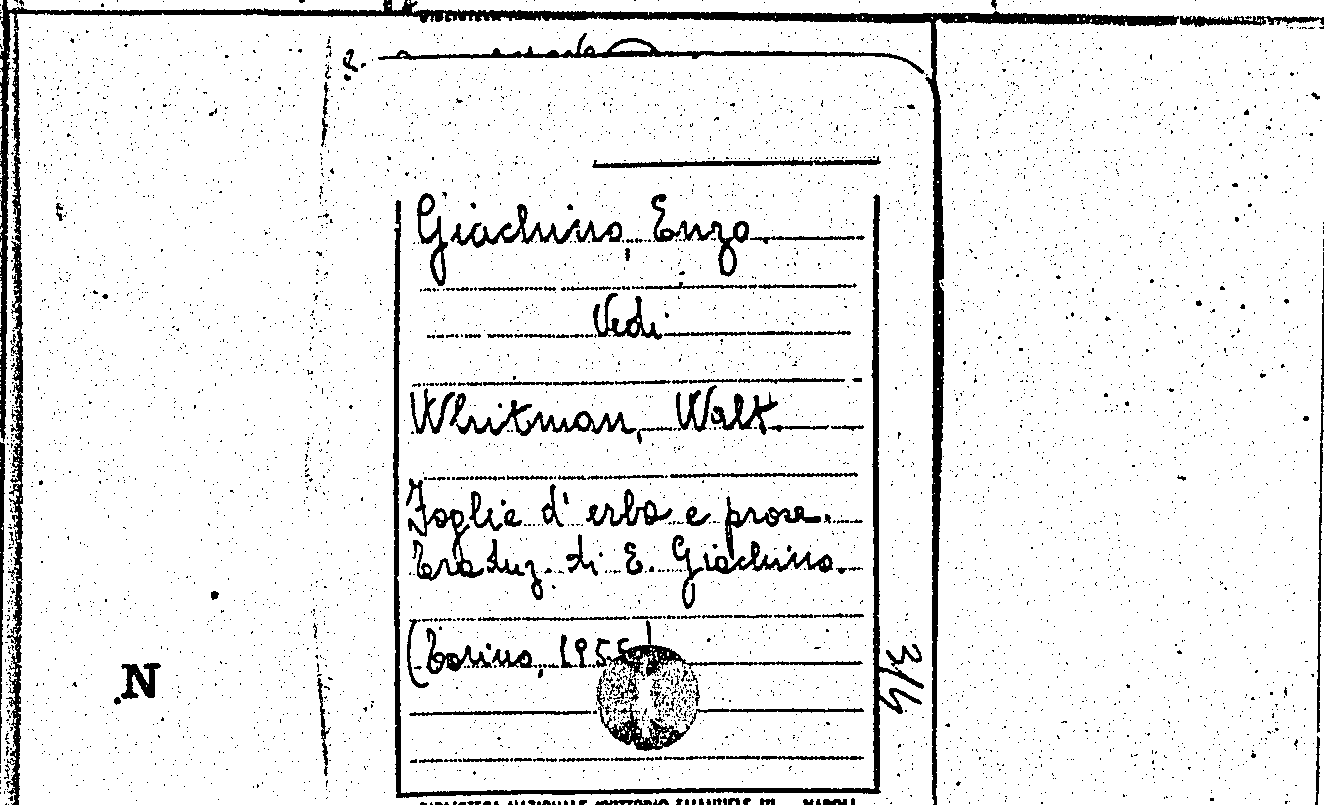 Giachino, Enzo.
Vedi
Whitman, Walt.
Foglie d'erba e prose.
Traduz. di E. Giachino.
(Torino, 1955)
3/4
N
BIBLIOTECA NAZIONALE VITTORIO EMANUELE III NAPOLI